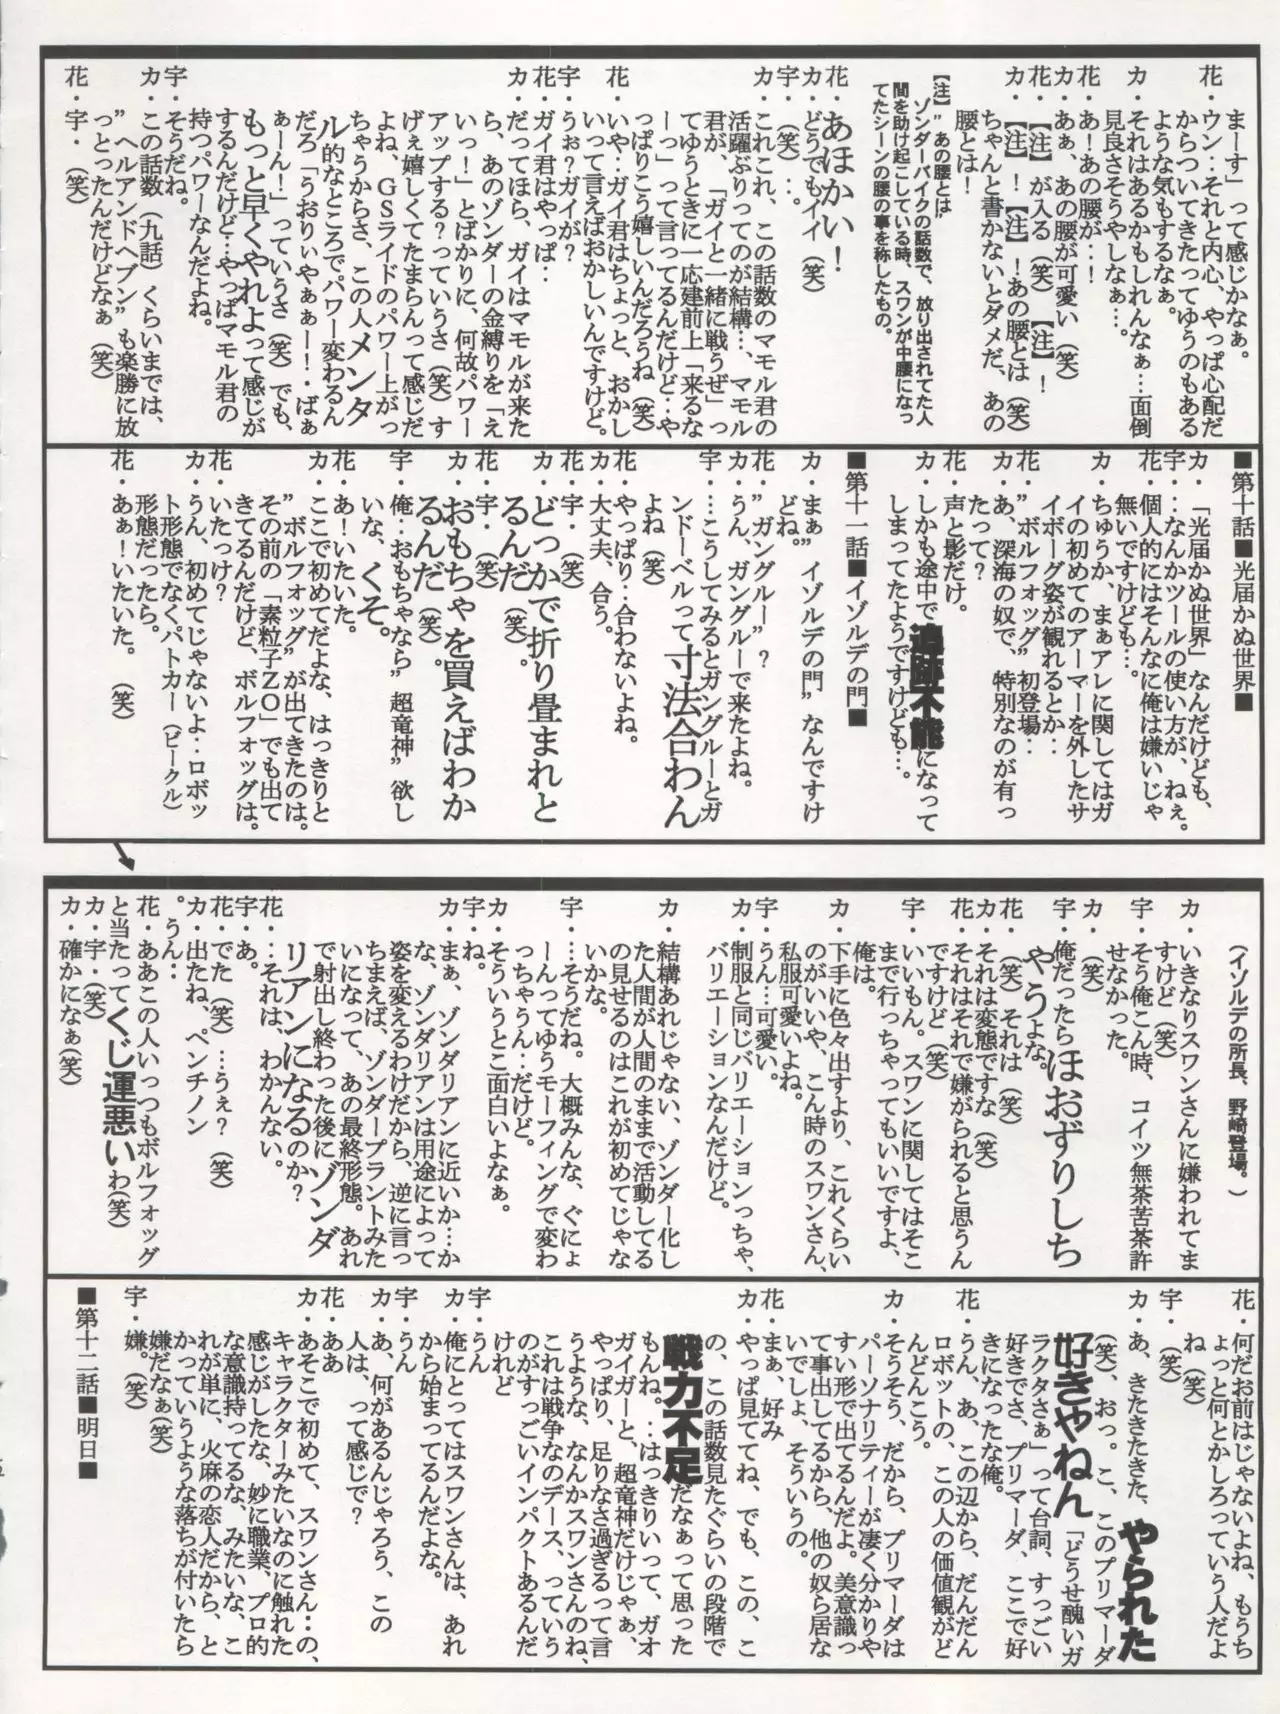 まーす」って感じかなぁ。
花・ウン‥それと内心、やっぱ心配だ
からついてきたってゆうのもある
ような気もするなぁ。
カ・それはあるかもしれんなぁ…面倒
見良さそうやしなぁ…。
花・あ！あの腰が‥！
カ・あぁ、あの腰が可愛い（笑）
花・【注】が入る（笑）【注】！
カ・【注】！【注】！あの腰とは（笑）
ちゃんと書かないとダメだ、あの
腰とは！
【注】”あの腰とは”
ゾンダーバイクの話数で、放り出されてた人
間を助け起こしている時、スワンが中腰になっ
てたシーンの腰の事を称したもの。
花・あほかい！
カ・どうでもイイ（笑）
宇・（笑）‥。
カ・これこれ、この話数のマモル君の
活躍ぶりってのが結構…、マモル
君が、「ガイと一緒に戦うぜ」っ
てゆうときに一応建前上「来るな
ーっ」って言ってるんだけど‥や
っぱりこう嬉しいんだろうね（笑）
花・いや‥ガイ君はちょっと、おかし
いって言えばおかしいんですけど。
宇・うぉ？ガイが？
花・ガイ君はやっぱ‥
カ・だってほら、ガイはマモルが来た
ら、あのゾンダーの金縛りを「え
いっ！」とばかりに、何故パワー
アップする？っていうさ（笑）す
げぇ嬉しくてたまらんって感じだ
よね、GSライドのパワー上がっ
ちゃうからさ、この人メンタ
ル的なところでパワー変わるん
だろ「うおりぃやぁぁー！‥ばぁ
ぁーん！」っていうさ（笑）でも、
もっと早くやれよって感じが
するんだけど…やっぱマモル君の
持つパワーなんだよね。
宇・そうだね。
カ・この話数（九話）くらいまでは、
”ヘルアンドヘブン”も楽勝に放
っとったんだけどなぁ（笑）
花・宇・（笑）
■第十話■光届かぬ世界■
カ・「光届かぬ世界」なんだけども、
宇・‥なんかツールの使い方が、ねぇ。
花・個人的にはそんなに俺は嫌いじゃ
無いですけども…。
カ・ちゅうか、まぁアレに関してはガ
イの初めてのアーマーを外したサ
イボーグ姿が観れるとか‥
花・”ボルフォッグ”初登場‥
カ・あ、深海の奴で、特別なのが有っ
たって？
花・声と影だけ。
カ・しかも途中で追跡不能になって
しまってたようですけども…。
■第十一話■イゾルデの門■
カ・まぁ”イゾルデの門”なんですけ
どね。
花・”ガングルー”？
カ・うん、ガングルーで来たよね。
宇・…こうしてみるとガングルーとガ
ンドーベルって寸法合わん
よね（笑）
花・やっぱり‥合わないよね。
カ・大丈夫、合う。
花・宇・（笑）
カ・どっかで折り畳まれと
るんだ（笑）。
花・宇・（笑）
カ・おもちゃを買えばわか
るんだ（笑）。
宇・俺‥おもちゃなら”超竜神”欲し
いな、くそ。
花・あ！いたいた。
カ・ここで初めてだよな、はっきりと
”ボルフォッグ”が出てきたのは。
その前の「素粒子ZO」でも出て
きてるんだけど、ボルフォッグは。
花・いたっけ？
カ・うん、初めてじゃないよ‥ロボッ
ト形態でなくパトカー（ビークル）
形態だったら。
花・あぁ！いたいた。（笑）
（イゾルデの所長、野崎登場。）
カ・いきなりスワンさんに嫌われてま
すけど（笑）
宇・そう俺こん時、コイツ無茶苦茶許
せなかった。
カ・（笑）
宇・俺だったらほおずりしち
ゃうよな。
花・（笑）それは（笑）
カ・それは変態ですな（笑）
花・それはそれで嫌がられると思うん
ですけど（笑）
宇・いいもん。スワンに関してはそこ
まで行っちゃってもいいですよ、
俺は。
カ・下手に色々出すより、これくらい
のがいいや、こん時のスワンさん、
私服可愛いよね。
宇・うん…可愛い。
カ・制服と同じバリエーションっちゃ、
バリエーションなんだけど。
カ・結構あれじゃない、ゾンダー化し
た人間が人間のままで活動してる
の見せるのはこれが初めてじゃな
いかな。
宇・…そうだね。大概みんな、ぐにょ
ーんってゆうモーフィングで変わ
っちゃうん…だけど。
カ・そういうとこ面白いよなぁ。
宇・ね。
カ・まぁ、ゾンダリアンに近いか…か
な、ゾンダリアンは用途によって
姿を変えるわけだから、逆に言っ
ちまえば、ゾンダープラントみた
いになって、あの最終形態。あれ
で射出し終わった後にゾンダ
リアンになるのか？
花・‥それは、わかんない。
宇・あ。
花・でた（笑）…うぇ？（笑）
カ・出たね、ペンチノン
。うん‥
花・ああこの人いっつもボルフォッグ
と当たってくじ運悪いわ（笑）
カ・宇・（笑）
カ・確かになぁ（笑）
花・何だお前はじゃないよね、もうち
ょっと何とかしろっていう人だよ
ね（笑）
宇・（笑）
カ・あ、きたきたきた、やられた
（笑）、おっ。こ、このプリマーダ
好きやねん「どうせ醜いガ
ラクタさぁ」って台詞、すっごい
好きでさ、プリマーダ、ここで好
きになったな俺。
花・うん、あ、この辺から、だんだん
ロボットの、この人の価値観がど
んどんこう。
カ・そうそう、だから、プリマーダは
パーソナリティーが凄く分かりや
すい形で出てるんだよ。美意識っ
て事出してるから、他の奴ら居な
いでしょ、そういうの。
花・まぁ、好み
カ・やっぱ見ててね、でも、この、こ
の、この話数見たぐらいの段階で
戦力不足だなぁって思った
もんね。‥はっきりいって、ガオ
ガイガーと、超竜神だけじゃぁ、
やっぱり、足りなさ過ぎるって言
うような、なんかスワンさんのね、
これは戦争なのデース、っていう
のがすっごいインパクトあるんだ
けれど
宇・うん
カ・俺にとってはスワンさんは、あれ
から始まってるんだよな。
宇・うん
カ・あ、何があるんじゃろう、この
人は、って感じで？
花・ああ
カ・あそこで初めて、スワンさん‥の、
キャラクターみたいなのに触れた
感じがしたな、妙に職業、プロ的
な意識持ってるな、みたいな、こ
れが単に、火麻の恋人だから、と
かっていうような落ちが付いたら
嫌だなぁ（笑）
宇・嫌。（笑）
■第十二話■明日■